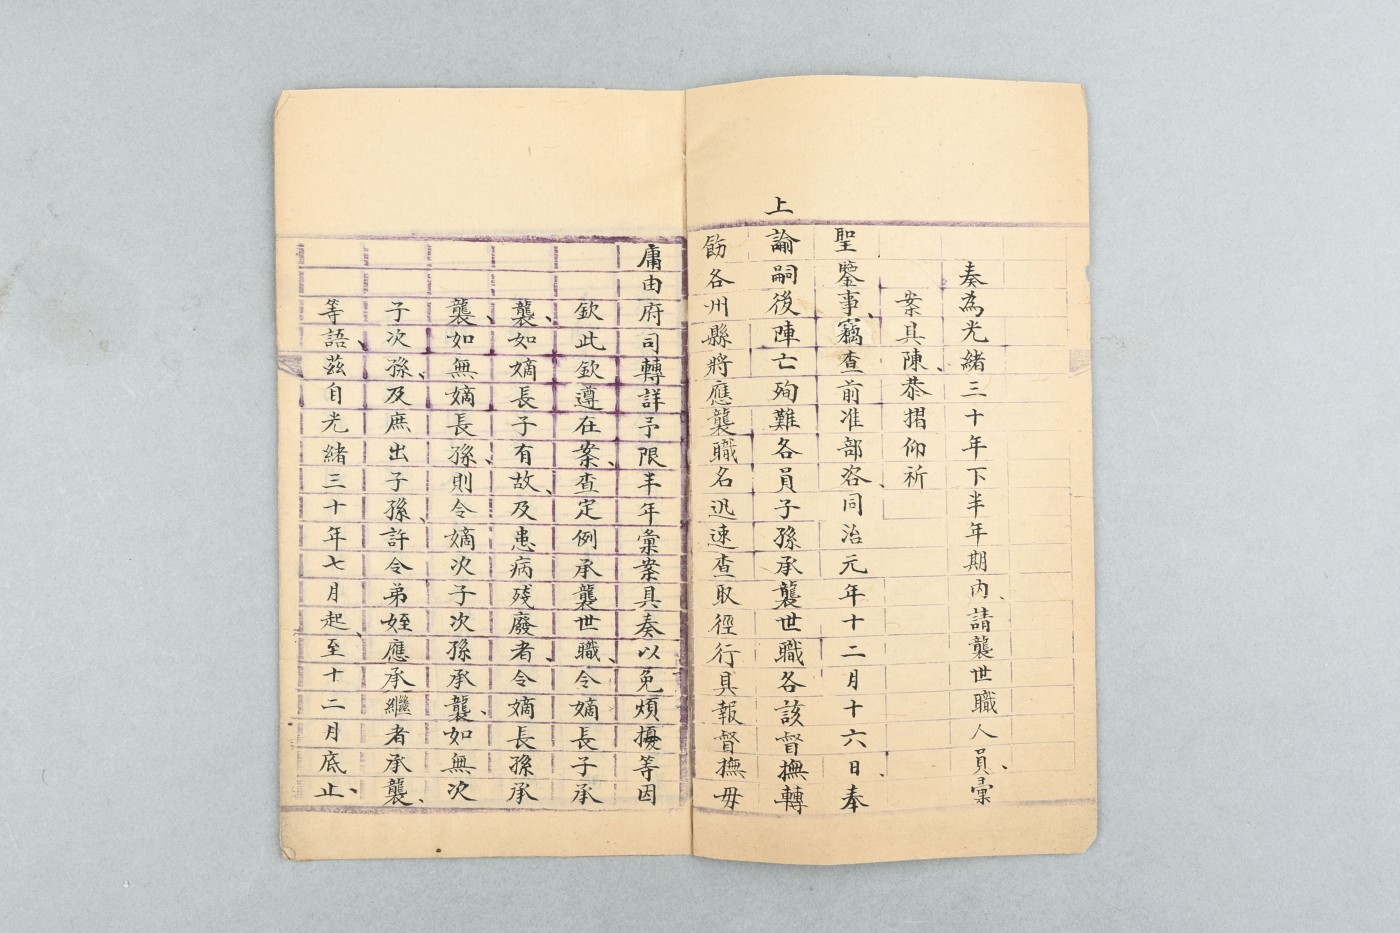 奏為光緒三十年下半年期內、請襲世職人員、彙
案具陳、恭摺仰祈
聖鑒事、竊查前准部咨、同治元年十二月十六日、奉
上諭嗣後陣亡殉難各員子孫承襲世職各該督撫轉
飭各州縣將應襲職名迅速查取徑行具報督撫毋
庸由府司轉詳予限半年彙案具奏以免煩擾等因
欽此欽遵在案、查定例承襲世職、令嫡長子承
襲、如嫡長子有故、及患病殘廢者、令嫡長孫承
襲、如無嫡長孫、則令嫡次子次孫承襲、如無次
子次孫、及庶出子孫、許令弟姪應承繼者承襲、
等語、茲自光緒三十年七月起、至十二月底止、